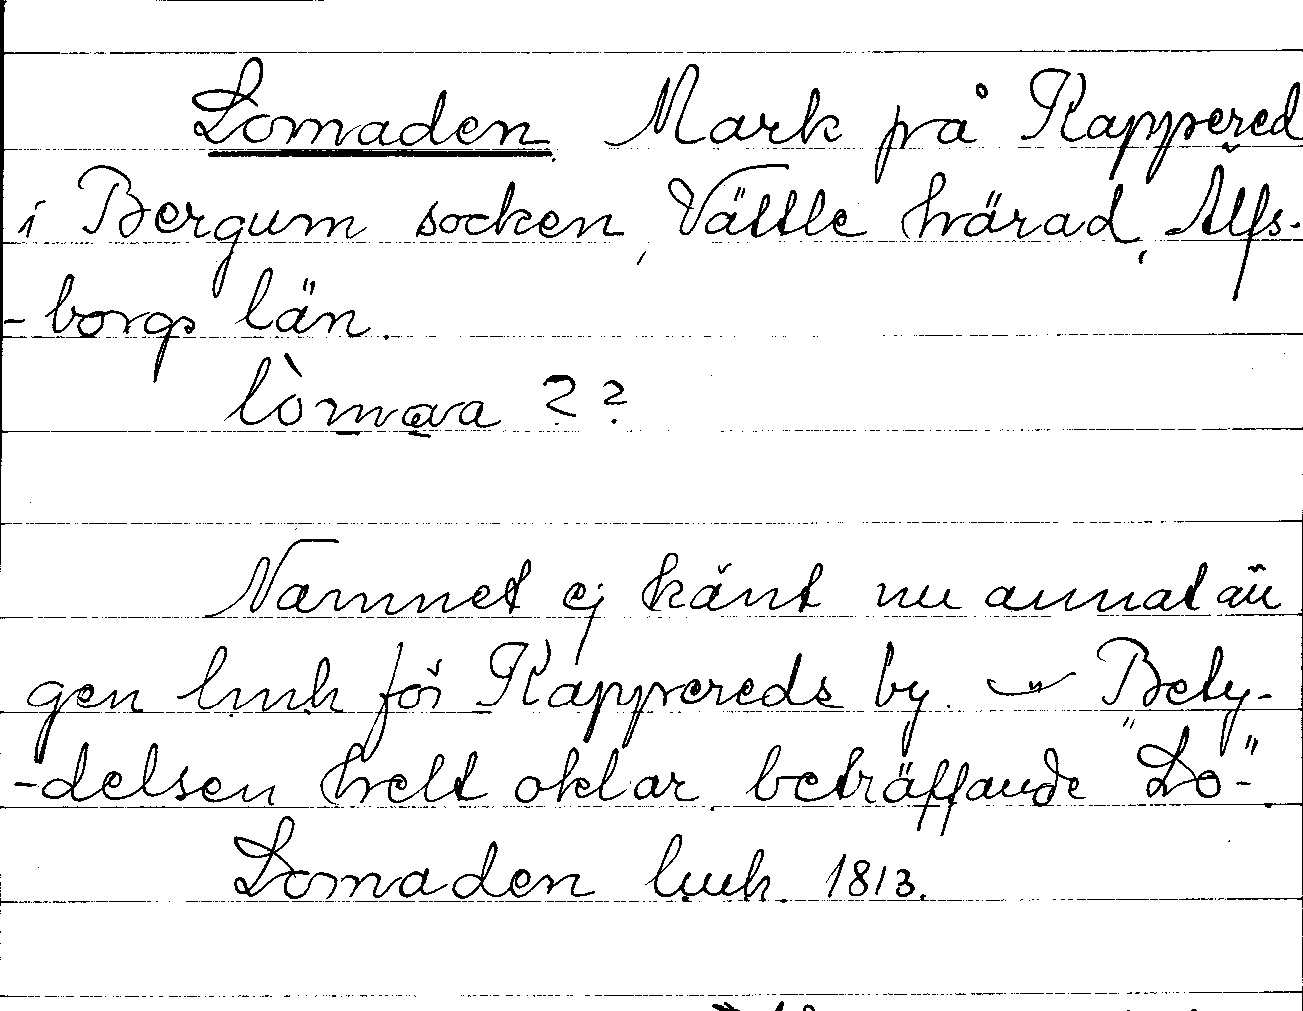 Lomaden Mark på Rappered
i Bergum socken, Vättle härad, Älfs-
-borgs län.
lòmava ??
Namnet ej känt nu annat än
gen lmh för Rappereds by. Bety-
-delsen helt oklar beträffande "Lo-".
Lomaden lmh. 1813.